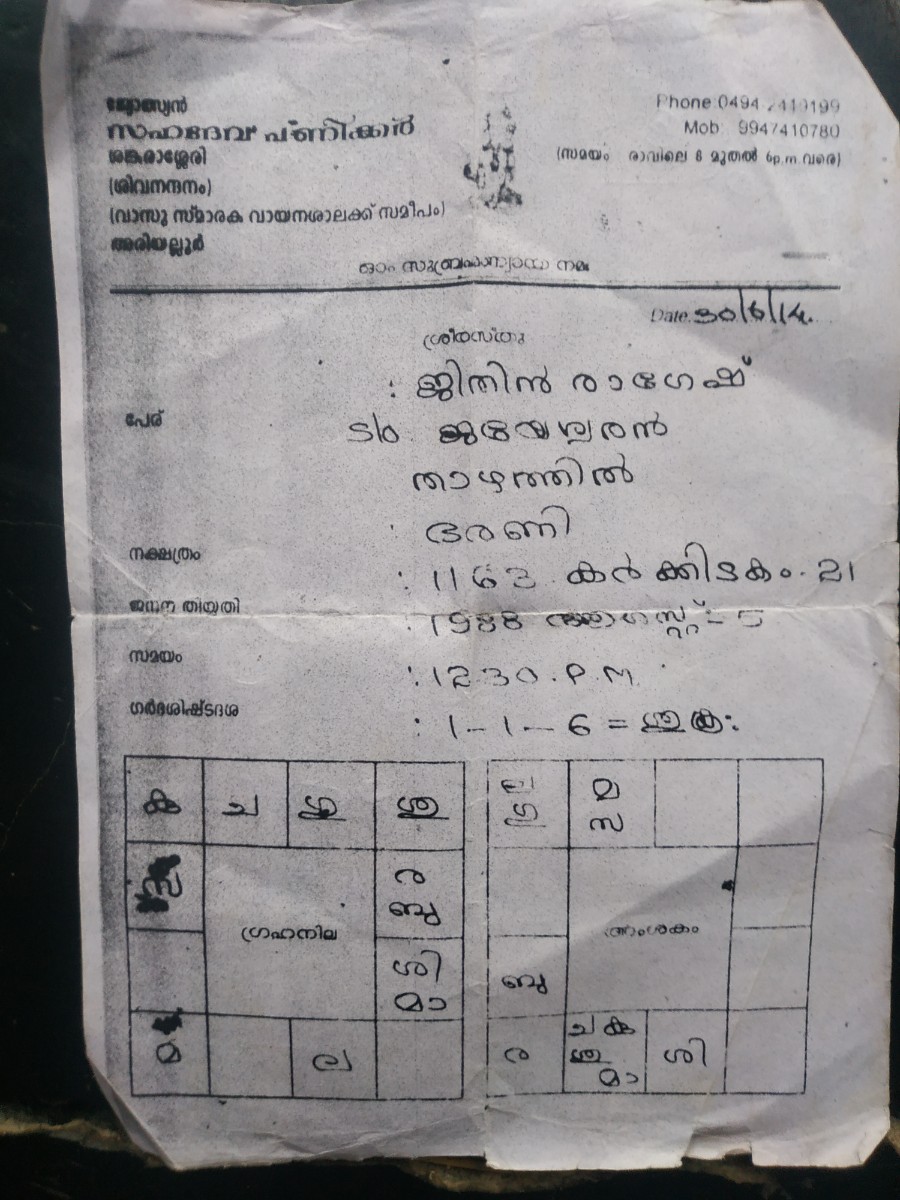 ജ്യോത്സ്യൻ
സഹദേവ പണിക്കർ
ശങ്കരാശ്ശേരി
(ശിവനന്ദനം)
(വാസു സ്മാരക വായനശാലക്ക് സമീപം)
അരിയല്ലൂർ
Phone:0494
Mob: 9947410780
(സമയം രാവിലെ 6 മുതൽ 6p.m വരെ)
ഓം സുബ്രഹ്മണ്യായ നമ
Date 30/6/14.
ശ്രീരസ്തു
പേര് : ജിതിൻ രാഗേഷ്
S/o
താഴത്തിൽ
നക്ഷത്രം : ഭരണി
ജനന തിയ്യതി : 1163 കർക്കിടകം. 21
: 1988 ആഗസ്റ്റ് - 5
സമയം : 12.30. P.M
ഗർഭശിഷ്ടദശ : 1-1-6 =
ച ഗു ശു
ര
ബു
ഗ്രഹനില
ശി
മാ
മ ല
ല
ഗു
മ
സ
അംശകം
ബു
ര
ച
ശു
മാ
ശി